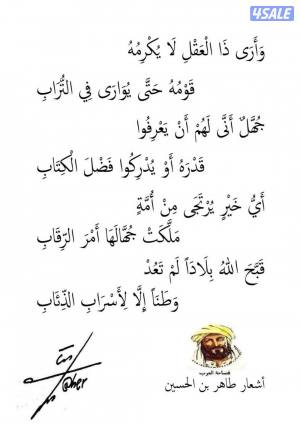 4SALE
وَأَرَى ذَا الْعَقْلِ لَا يُكْرِمُهُ
قَوْمُهُ حَتَّى يُوَارَى فِي التُّرَابِ
جُهَّلٌ أَنَّى لَهُمْ أَنْ يَعْرِفُوا
قَدْرَهُ أَوْ يُدْرِكُوا فَضْلَ الْكِتَابِ
أَيُّ خَيْرٍ يُرْتَجَى مِنْ أُمَّةٍ
مَلَّكَتْ جُهَّالَهَا أَمْرَ الرِّقَابِ
قَبَّحَ اللهُ بِلَاداً لَمْ تَعُدْ
وَطَناً إِلَّا لِأَسْرَابِ الذِّئَابِ
فصاحة العرب
أشعار طاهر بن الحسين